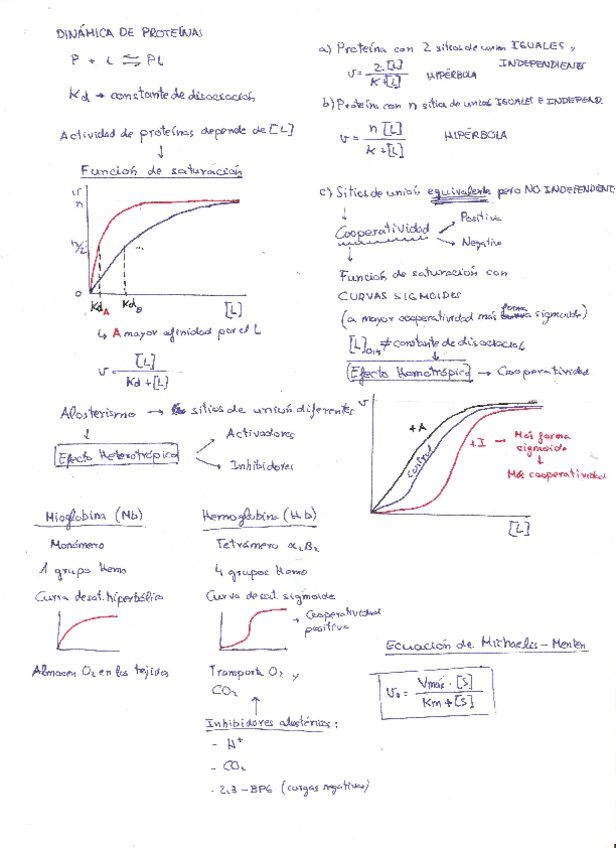 DINÁMICA DE PROTEÍNAS
P + L ⇌ PL
Kd → constante de disociación
Actividad de proteínas depende de [L]
↓
Función de saturación
v
n
n/2
0
...
KdA
KdB
[L]
↳ A mayor afinidad por el L
v = [L] / Kd + [L]
Alosterismo → sitios de unión diferentes
↓
Efecto Heterotrópico
Activadores
Inhibidores
a) Proteína con 2 sitios de unión IGUALES y
INDEPENDIENTES
v = 2[L] / K + [L] HIPÉRBOLA
b) Proteína con n sitios de unión IGUALES E INDEPEND.
v = n[L] / K + [L] HIPÉRBOLA
c) Sitios de unión equivalente pero NO INDEPENDENT
↓
Cooperatividad
Positiva
Negativa
↓
Función de saturación con
CURVAS SIGMOIDES
(a mayor cooperatividad más forma sigmoide)
[L]0,5 ≠ constante de disociación
↓
Efecto Homotrópico → Cooperatividad
v
+A
control
+I → Más forma
sigmoide
↓
Más cooperatividad
[L]
Mioglobina (Mb)
Monómero
1 grupo Hemo
Curva de sat. hiperbólica
Almacen O2 en los tejidos
Hemoglobina (Hb)
Tetrámero α2B2
4 grupos Hemo
Curva de sat. sigmoide
→ Cooperatividad
positiva
Transporta O2 y
CO2
↑
Inhibidores alostéricos:
- H+
- CO2
- 2,3-BPG (cargas negativas)
Ecuación de Michaelis-Menten
v0 = Vmáx · [S] / Km + [S]